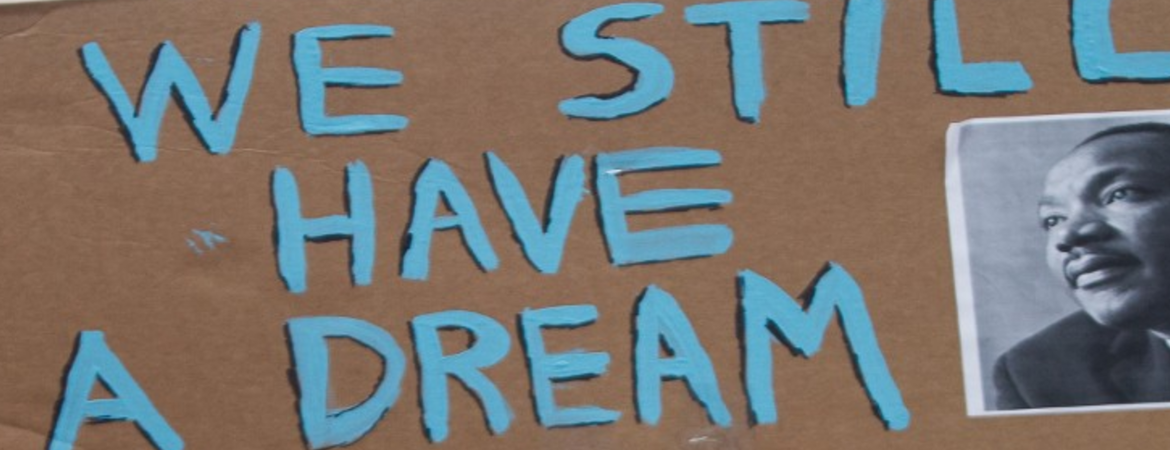 WE STILL
HAVE
A DREAM